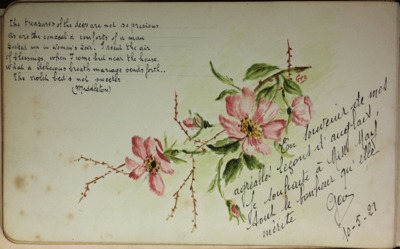 The treasures of the deep are not so precious
As are the conceal'd comforts of a man
Locked up in woman's love. I scent the air
Of blessings, when I come but near the house,
What a delicious breath marriage sends forth..
The violet bed's not sweeter
(Middleton)
Geo
En souvenir de mes
agréables leçons d'anglais
Je souhaite à Miss May
tout le bonheur qu'elle
mérite Geo
10-5-21